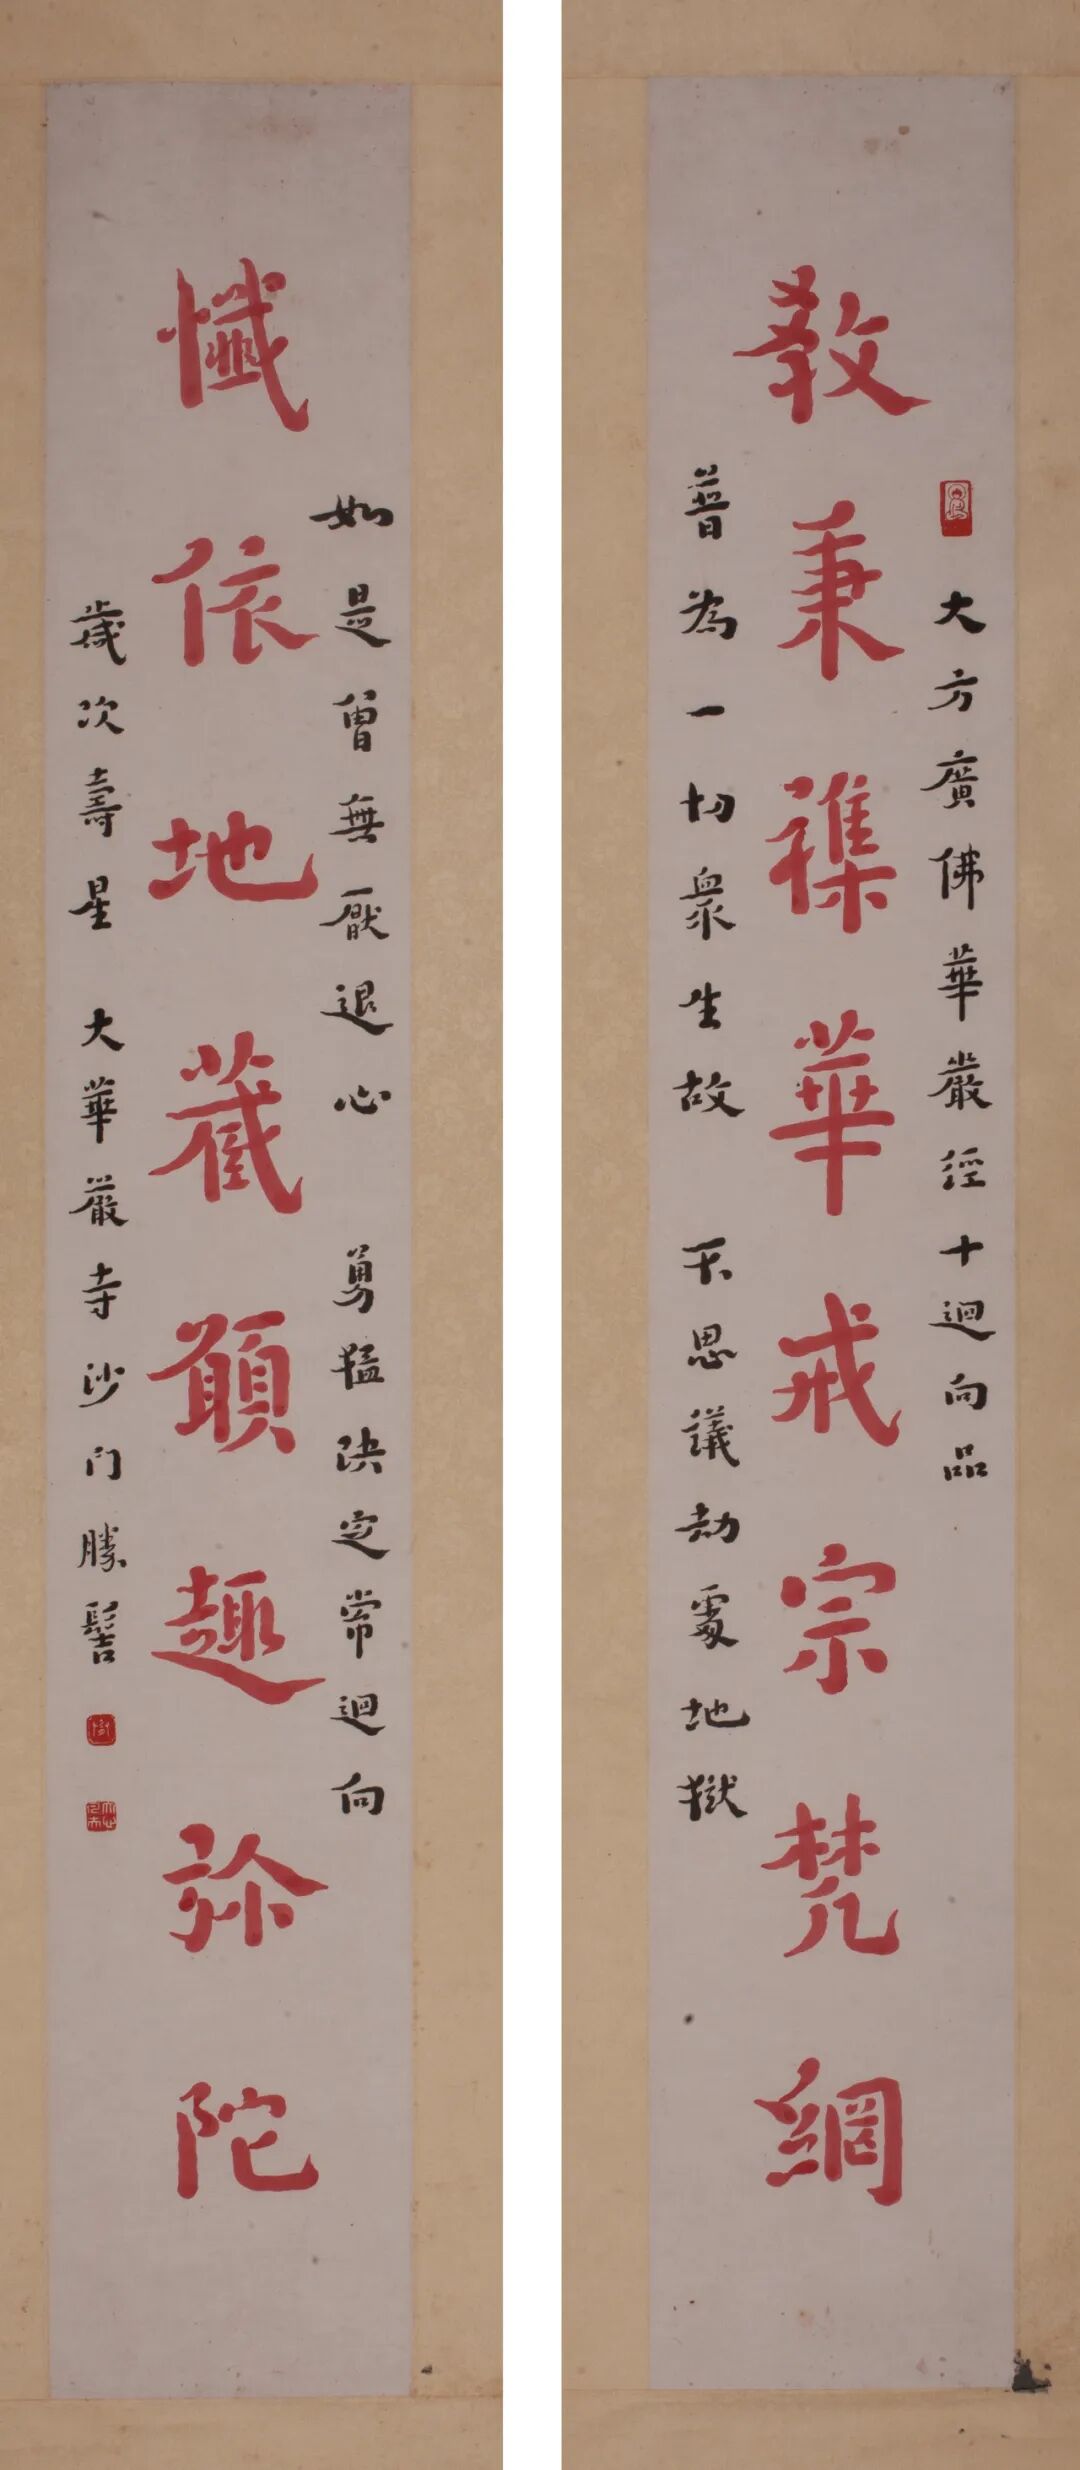 大方廣佛華嚴經十迴向品
敎秉襍華戒宗梵網
普為一切衆生故 不思議劫處地獄
如是曾無厭退心 勇猛決定常迴向
懺依地藏願趣弥陀
歲次壽星 大華嚴寺沙门勝髻